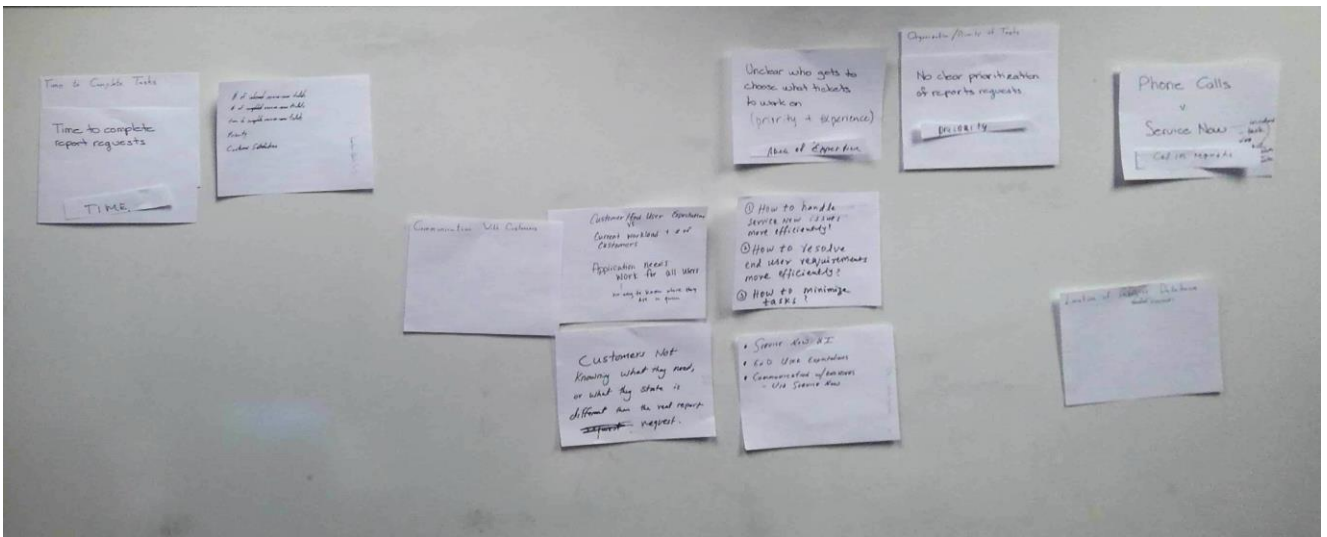 Time to Complete Tasks
Time to complete
report requests
TIME
Priority
Customer Satisfaction
Communication With Customers
Customer/End User Expectations
vs
Current workload + # of
customers
Application needs
Work for all users
no way to know where they
are in queue
Customers Not
Knowing what they need,
or what they state is
different than the real report
request.
Unclear who gets to
choose what tickets
to work on
(priority + experience)
Area of Expertise
① How to handle
service now issues
more efficiently?
② How to resolve
end user requirements
more efficiently?
③ How to minimize
tasks?
• Service Now
• End User Expectations
• Communication w/
- Via Service Now
Organization/Priority of Tasks
No clear prioritization
of reports requests
PRIORITY
Phone Calls
v
Service Now
Call in requests
Location of
Database